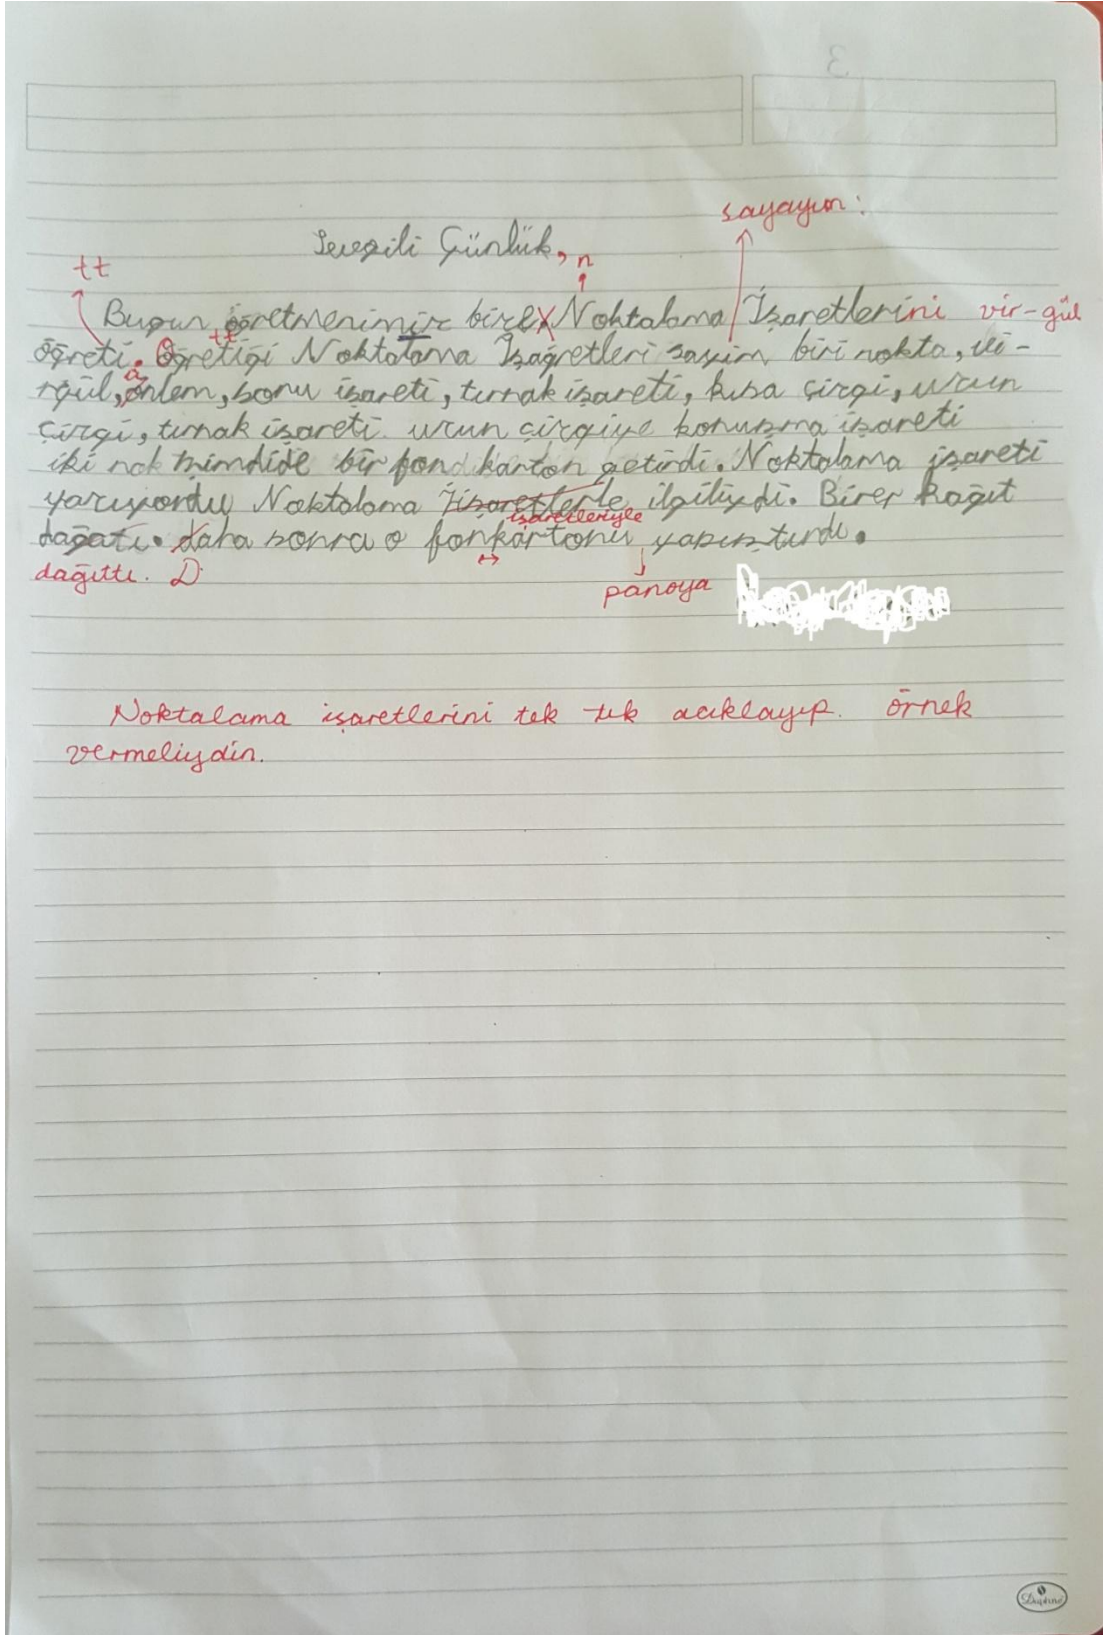 sayayım:
Sevgili Günlük,
tt
n
Bugün öğretmenimiz bize Noktalama İşaretlerini vir-gül
öğreti. Öğretiği Noktalama İşağretleri sayim, biri nokta, vi-
tt
a
rgül, önlem, soru işareti, tırnak işareti, kısa çizgi, uzun
çizgi, tırnak işareti. uzun çizgiye konuşma işareti
iki nok bir fon karton getirdi. Noktalama işareti
yazıyordu Noktalama İşaretlerle ilgiliydi. Birer kağıt
işaretleriyle
dağatı. daha sonra o fonkartonu yapıştırdı.
dağıttı. D
panoya
Noktalama işaretlerini tek tek acıklayıp. örnek
vermeliydin.
Daphne